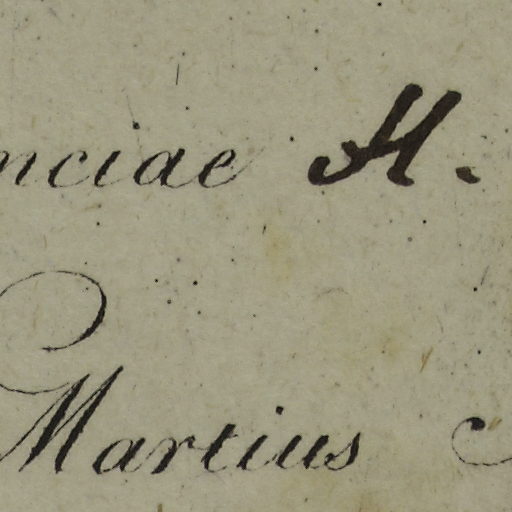 nciae H.
Martius